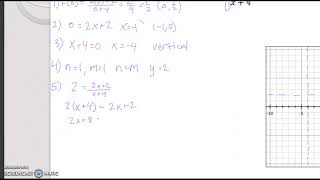 x+4
1) f(0) = = 2/4 = 1/2 (0, 1/2)
2) 0 = 2x+2 x=-1 (-1,0)
3) x+4=0 x=-4 vertical
4) n=1, m=1 n=m y=2
5) 2 = 2x+2/x+4
2(x+4) = 2x+2
2x+8 =
SCREENCAST MATIC